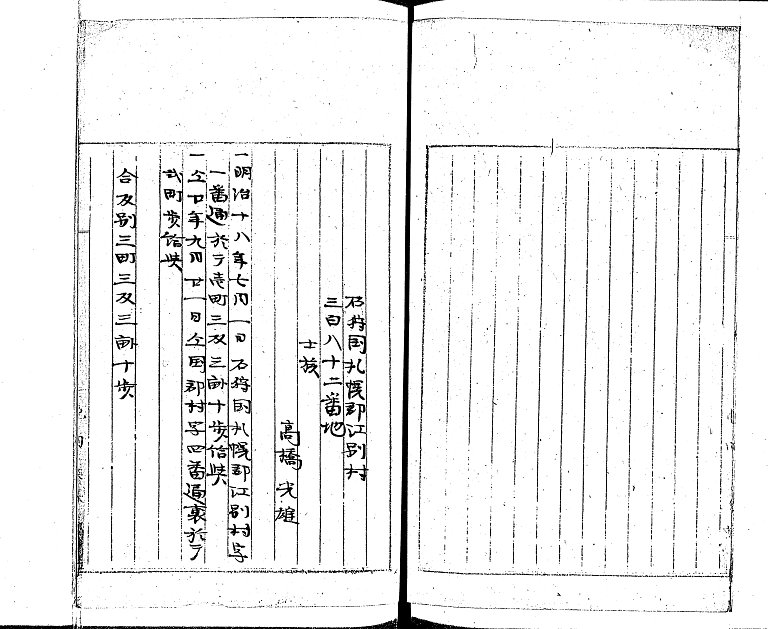 石狩国札幌郡江別村
三百八十二番地
士族
高橋光雄
一明治十八年七月一日石狩国札幌郡江別村字
一番通於テ壱町三反三畝十歩給与
一仝廿年九月廿一日仝国郡村字四番通裏於テ
弐町歩給与
合反別三町三反三畝十歩